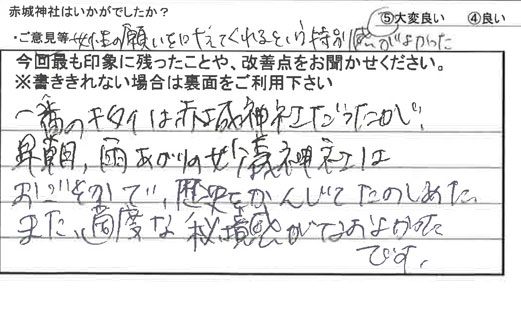 赤城神社はいかがでしたか? ⑤大変良い ④良い
・ご意見等 女性の願いを叶えてくれるという特別感がよかった
今回最も印象に残ったことや、改善点をお聞かせください。
※書ききれない場合は裏面をご利用下さい
一番のキタイは赤城神社だったが、
早朝、雨あがりの 神社は
おごそかで、歴史をかんじてたのしめた。
また、適度な秘境感がなおよかった
です。